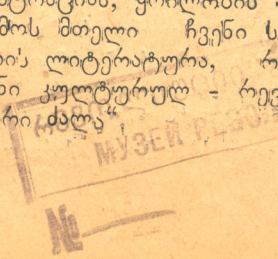 მოს მთელი ჩვენი ს
ის ლიტერატურა, რ
ნი კულტურულ - რევ
რი ძალა“
МУЗЕЙ РЕВО
№